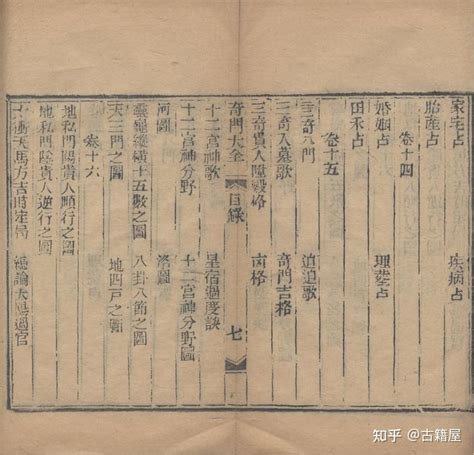 家宅占 疾病占
胎產占
卷十四
婚姻占
田禾占
卷十五
三奇八門 迫歌
三奇入墓歌 奇門吉格
三奇貴人陞殿格 凶格
奇門大全 目錄 七
十二宮神歌 星宿過度訣
十二宮神分野 十二宮神分野圖
河圖 洛圖
靈龜縱橫十五數之圖 八卦八節之圖
天三門之圖 地四戶之圖
卷十六
地私門陽貴人順行之圖
地私門陰貴人逆行之圖
太衝天馬方吉時定局 總論太陽過宮
知乎 @古籍屋